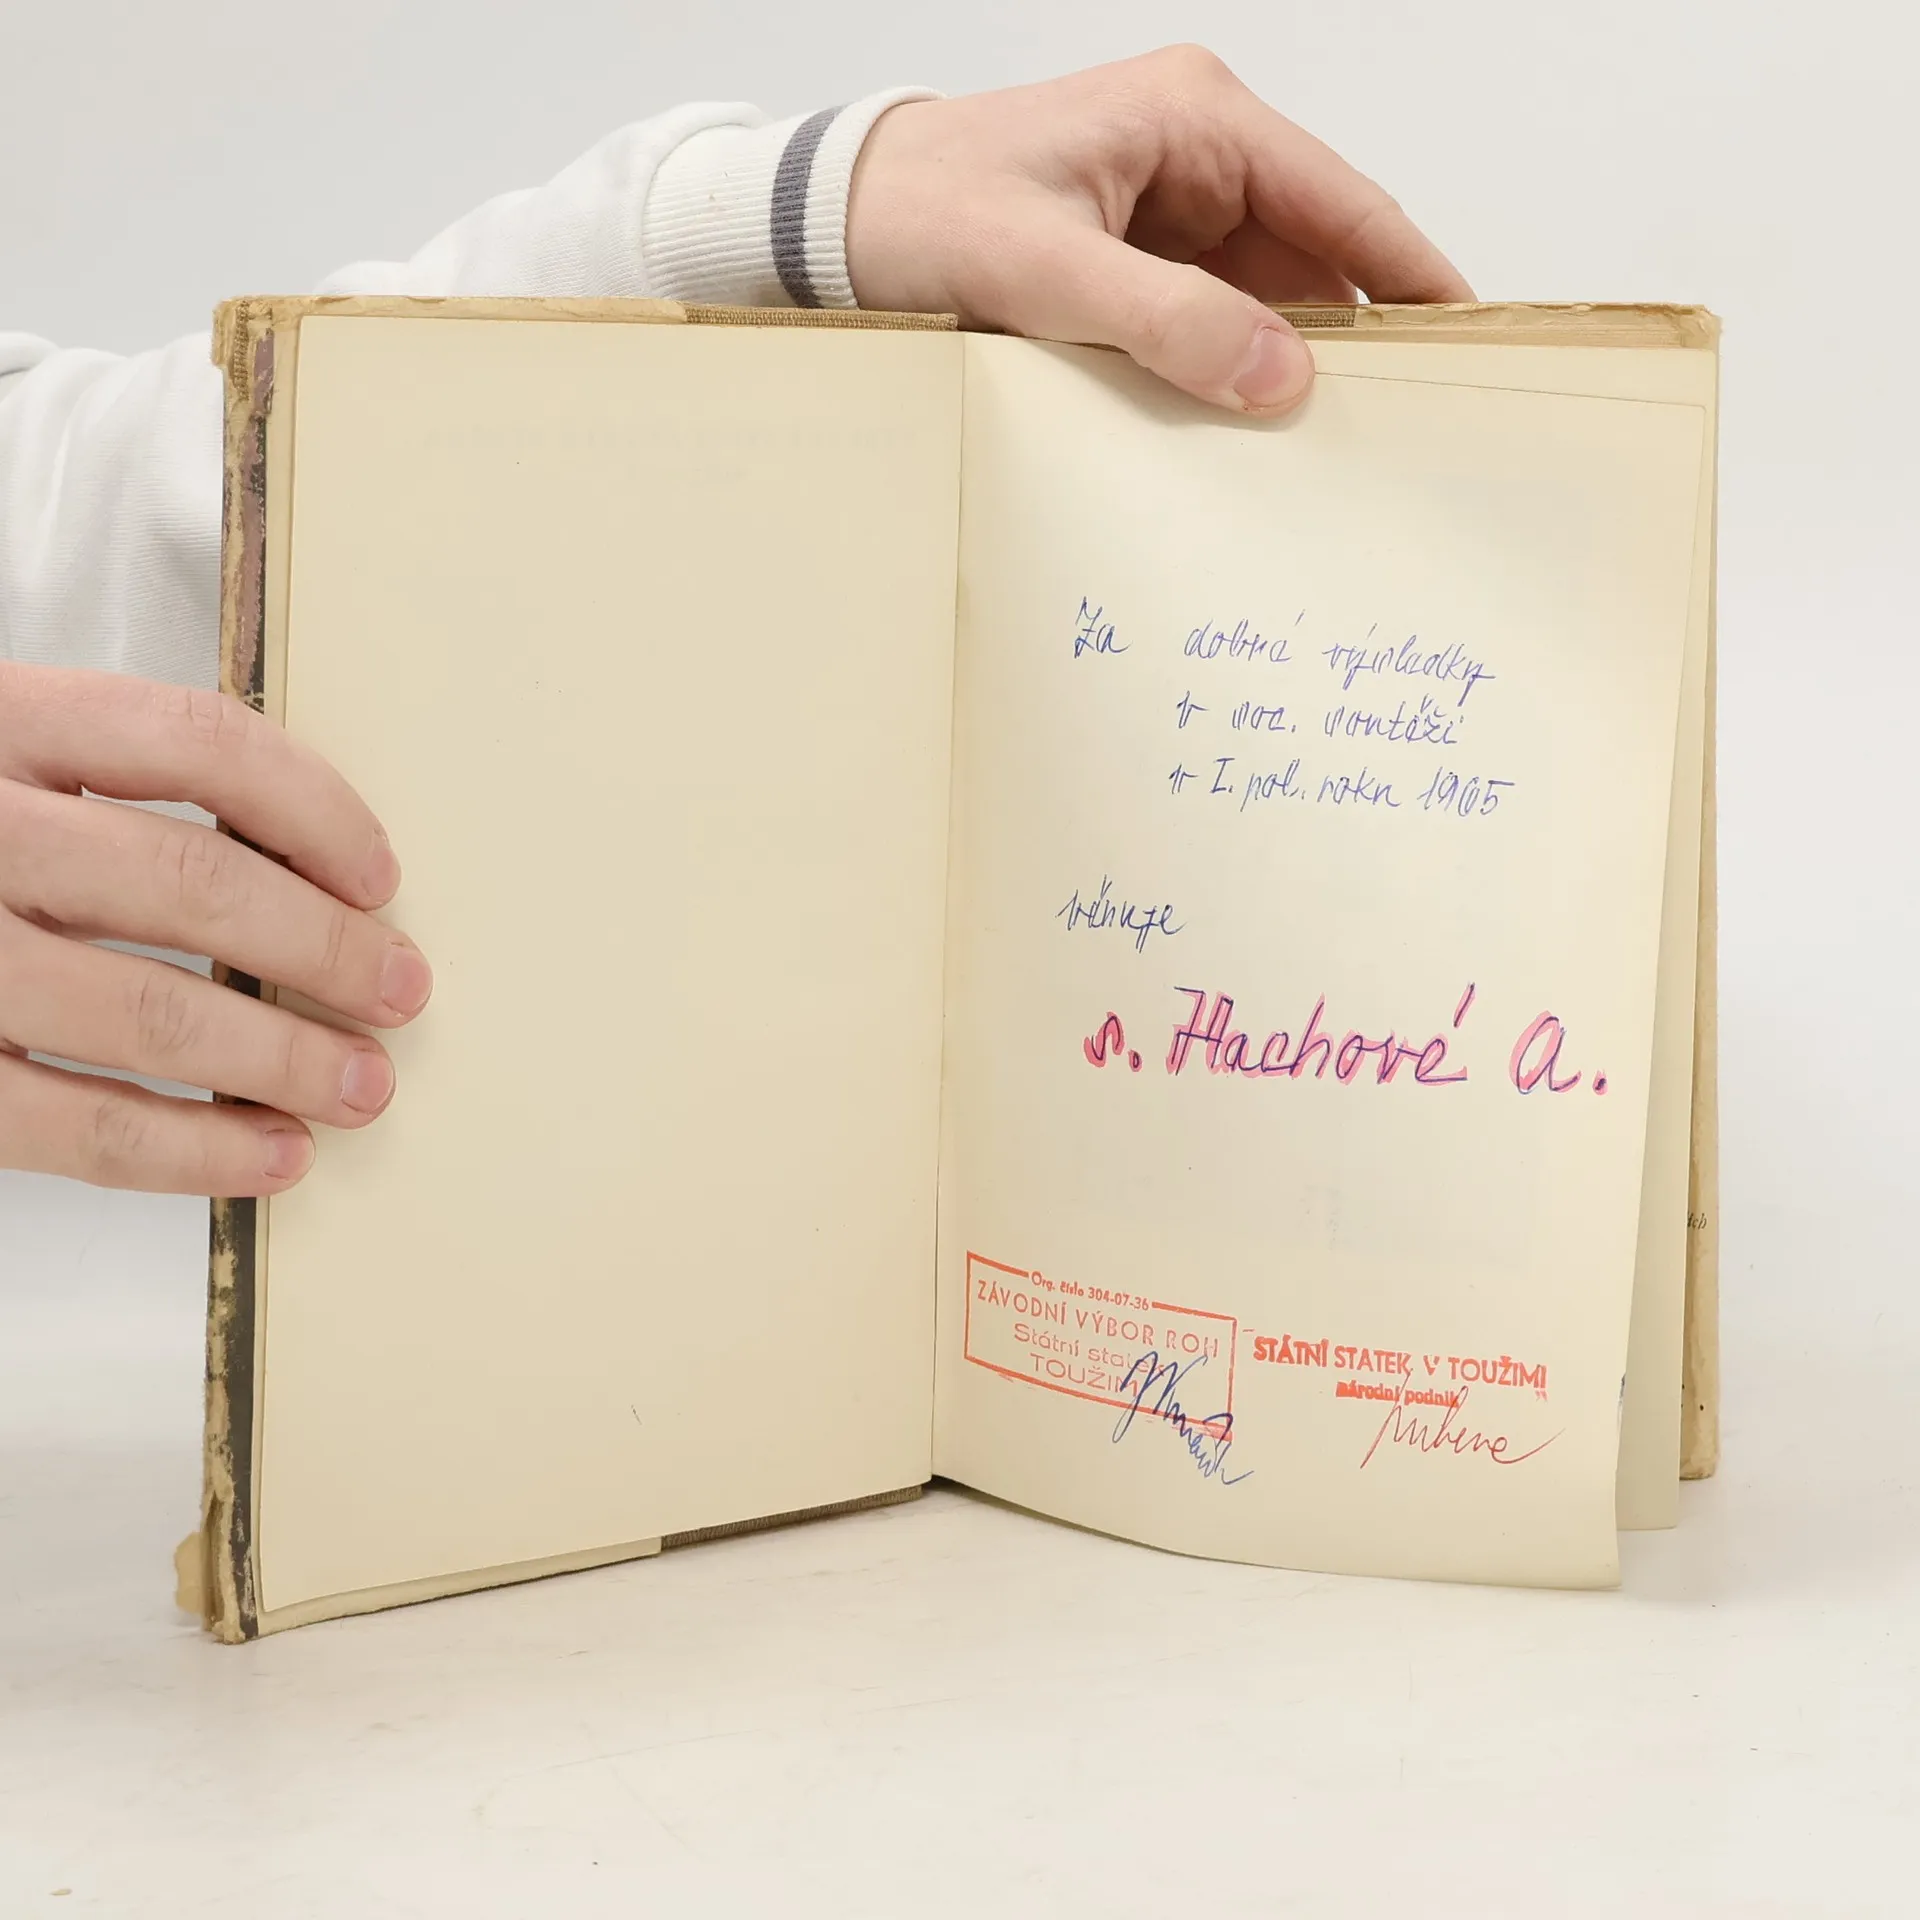 Za dobré výsledky
v soc. soutěži
v I. pol. roku 1965
věnuje
s. Hachové A.
Org. číslo 304-07-36
ZÁVODNÍ VÝBOR ROH
Státní statek
TOUŽIM
STÁTNÍ STATEK V TOUŽIMI
národní podnik